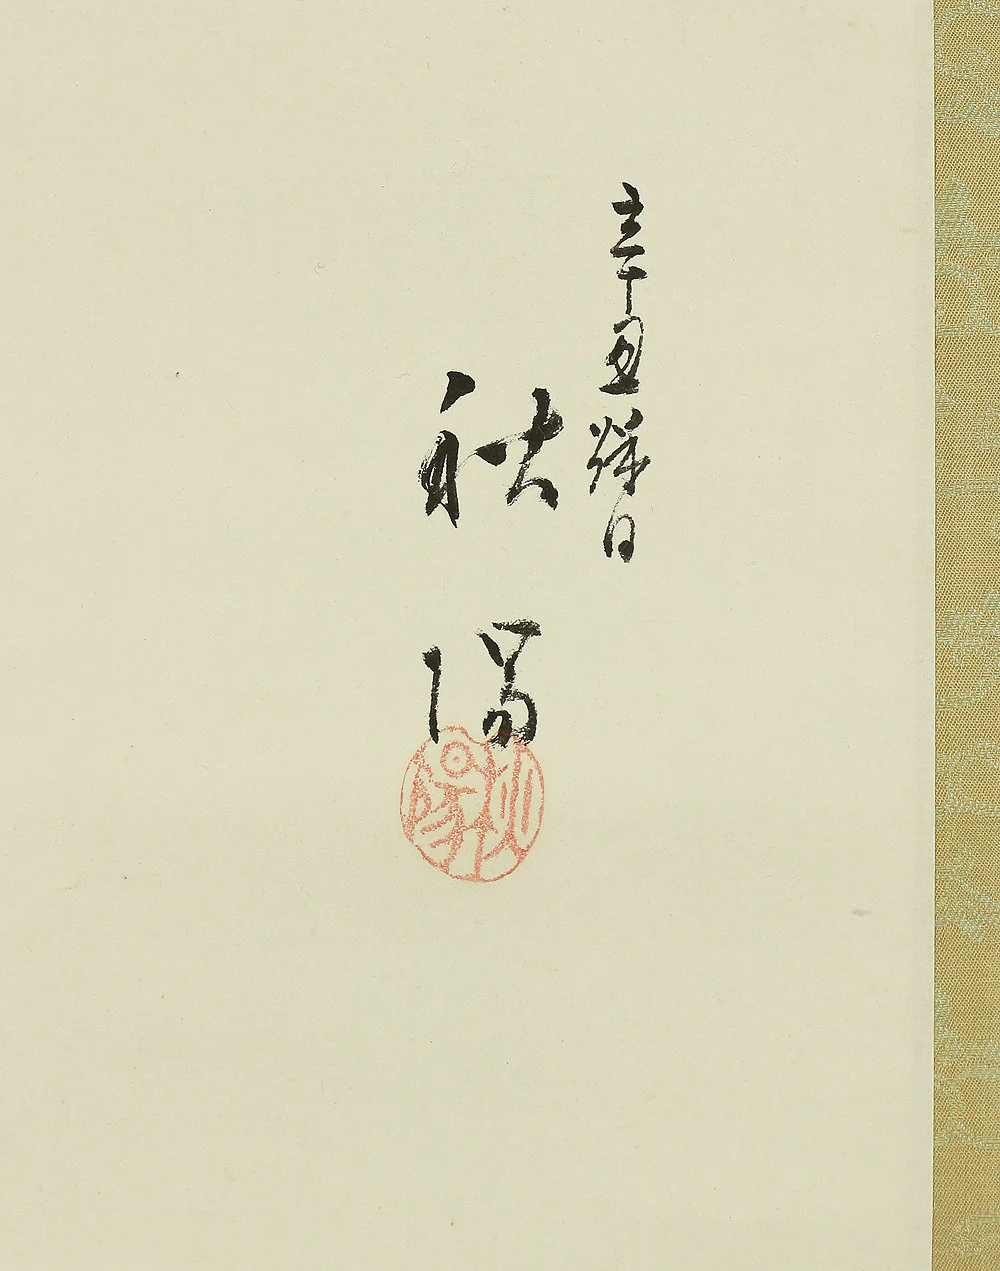 辛丑穐日
秋陽